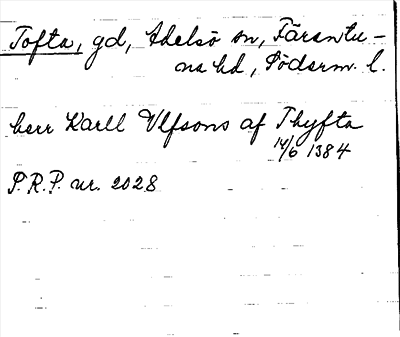 Tofta, gd, Adelsö sn, Färentu-
na hd, Söderm. l.
herr Karll Vlfsons af Thyfta
14/6 1384
P.R.P. nr. 2028